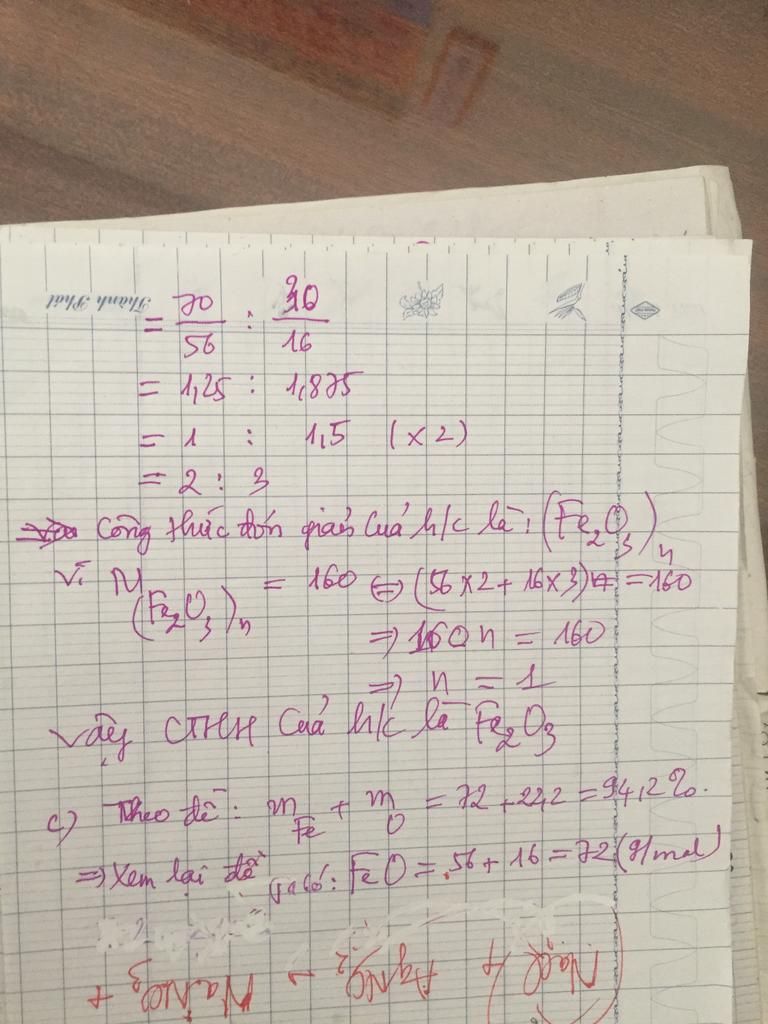 Thành Phát
= 70/56 : 30/16
= 1,25 : 1,875
= 1 : 1,5 (x2)
= 2 : 3
Công thức đơn giản của h/c là: (Fe₂O₃)ₙ
Vì M (Fe₂O₃)ₙ = 160 ⇔ (56x2 + 16x3)n = 160
⇒ 160n = 160
⇒ n = 1
Vậy CTHH của h/c là Fe₂O₃
c) Theo đề: m Fe + m O = 72 + 22,2 = 94,2%.
⇒ Xem lại đề
Ta có: FeO = 56 + 16 = 72 (g/mol)
NaCl + AgNO₂ → NaNO₃ +